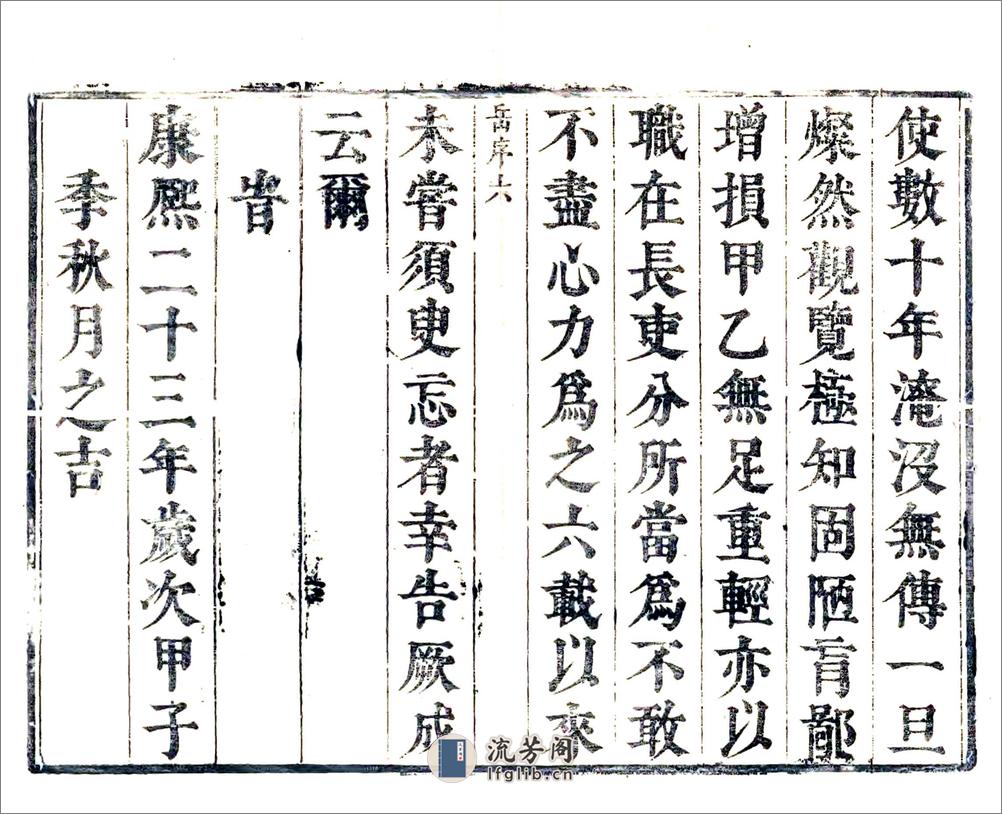 使數十年淹沒無傳一旦
燦然觀覽極知固陋肓鄙
增損甲乙無足重輕亦以
職在長吏分所當爲不敢
不盡心力爲之六載以來
岳序六
未嘗須臾忘者幸告厥成
云爾
旹
康熙二十三年歲次甲子
季秋月之吉
流芳阁
lfglib.cn